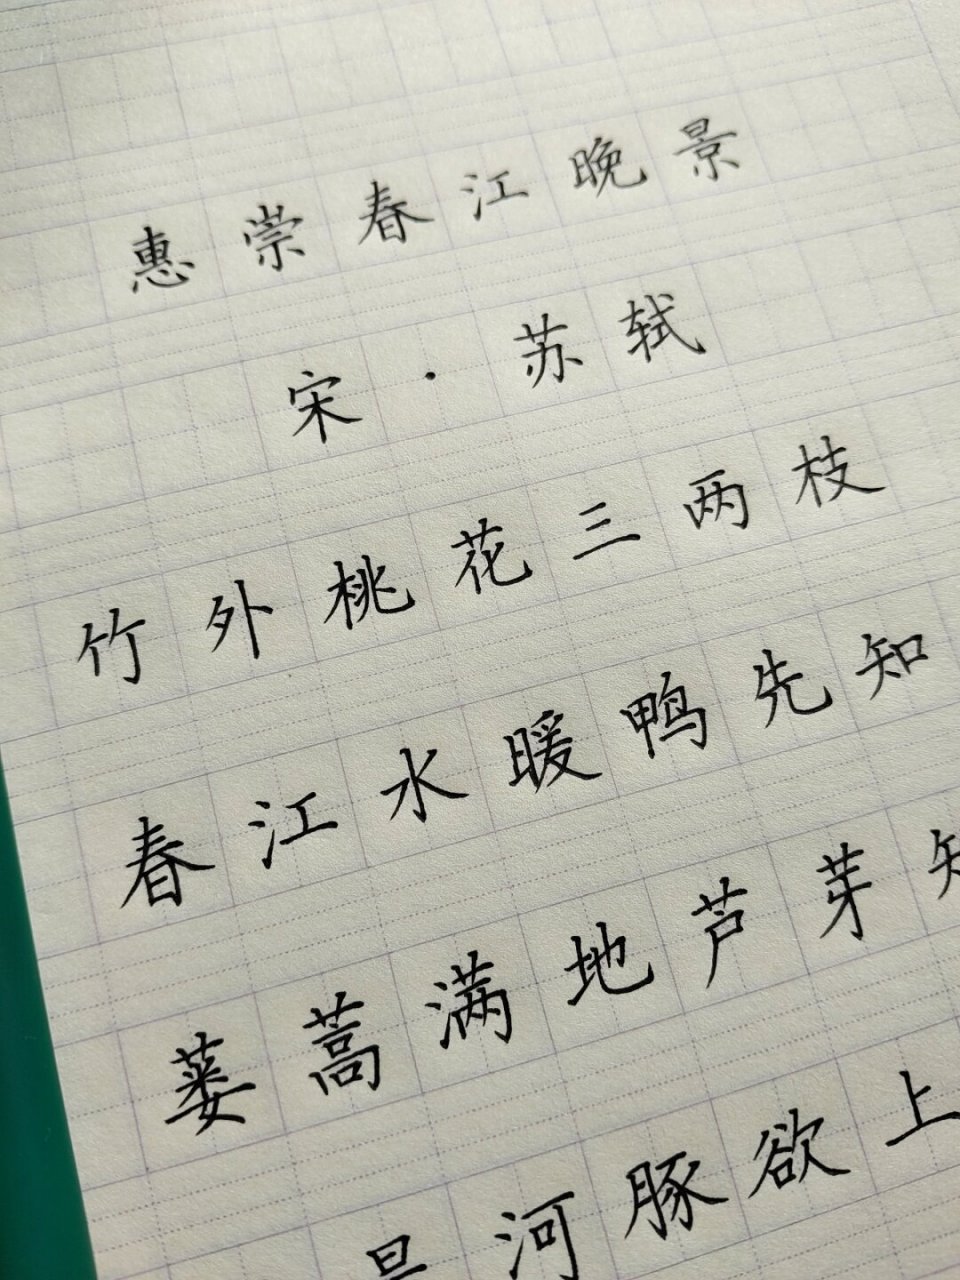 惠崇春江晚景
宋·苏轼
竹外桃花三两枝
春江水暖鸭先知
蒌蒿满地芦芽
河豚欲上